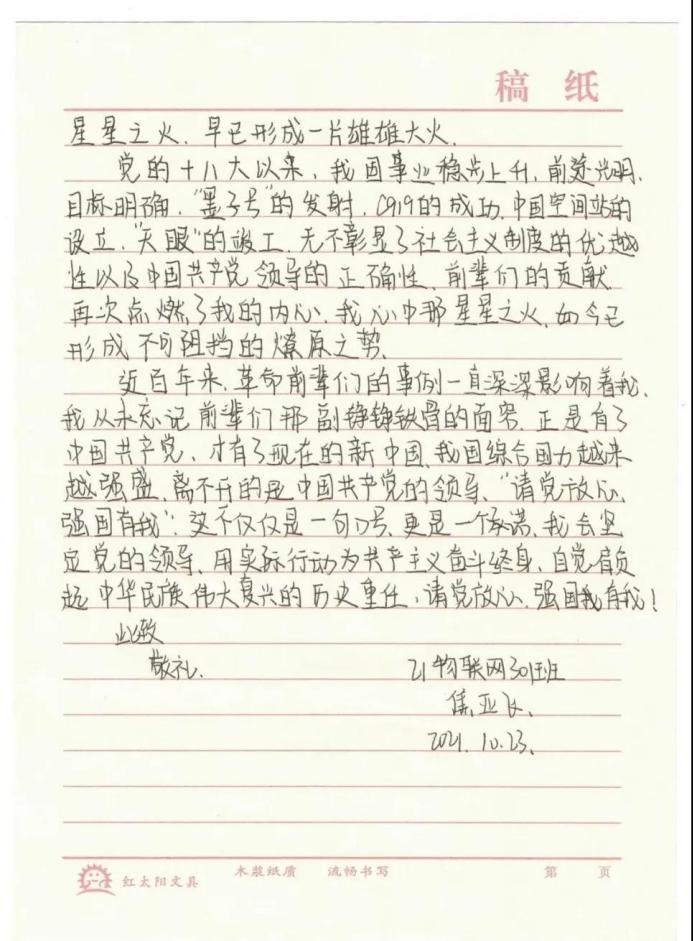 稿 纸
星星之火，早已形成一片雄雄大火。
党的十八大以来，我国事业稳步上升，前途光明，
目标明确，"墨子号"的发射，C919的成功，中国空间站的
设立，"天眼"的竣工，无不彰显了社会主义制度的优越
性以及中国共产党领导的正确性，前辈们的贡献
再次点燃了我的内心，我心中那星星之火，如今已
形成不可阻挡的燎原之势。
近百年来，革命前辈们的事例一直深深影响着我，
我从未忘记前辈们那副铮铮铁骨的面容，正是有了
中国共产党，才有了现在的新中国，我国综合国力越来
越强盛，离不开的是中国共产党的领导，"请党放心，
强国有我"，这不仅仅是一句口号，更是一个承诺，我会坚
定党的领导，用实际行动为共产主义奋斗终身，自觉肩负
起中华民族伟大复兴的历史重任，请党放心，强国我有我！
此致
敬礼。
21物联网301班
亚飞
2021.10.23.
红太阳文具 木浆纸质 流畅书写 第 页